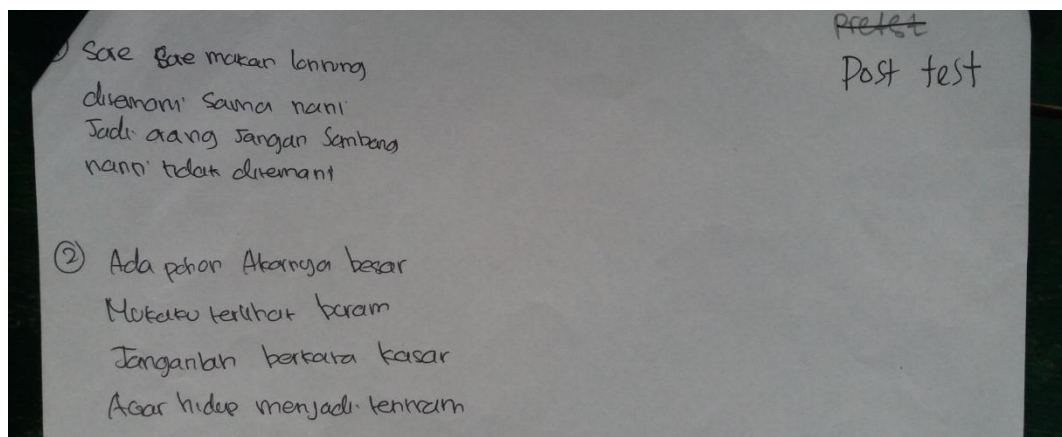 Pretest
Post test
Sore Sore makan lontong
ditemani sama nani
Jadi orang Jangan Sombong
nanti tidak ditemani
② Ada pohon Akarnya besar
Mukaku terlihat boram
Janganlah berkata kasar
Agar hidup menjadi tentram